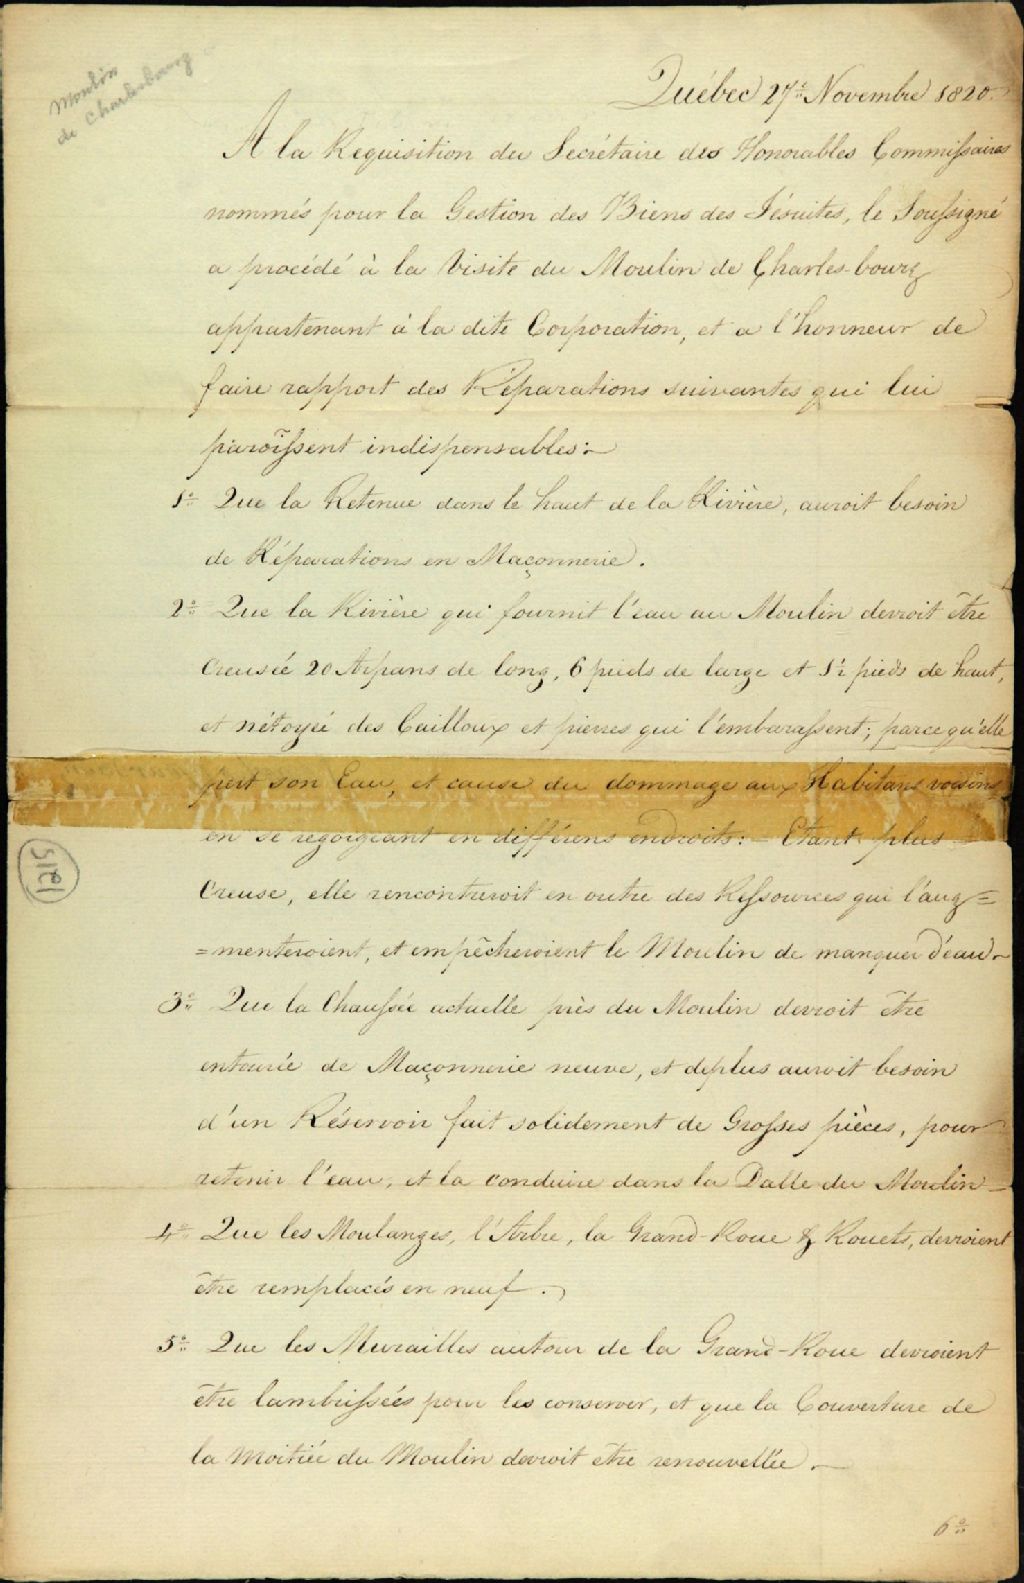 Moulin
de Charlesbourg
Québec 27e Novembre 1820.
A la Requisition du Secrétaire des Honorables Commissaires
nommés pour la Gestion des Biens des Jésuites, le Soussigné
a procédé à la Visite du Moulin de Charles-bourg
appartenant à la dite Corporation, et a l'honneur de
faire rapport des Réparations suivantes qui lui
paroissent indispensables:
1o Que la Retenue dans le haut de la Rivière, auroit besoin
de Réparations en Maçonnerie.
2o Que la Rivière qui fournit l'eau au Moulin devroit être
Creusée 20 Arpans de long, 6 pieds de large et 1½ pieds de haut,
et nétoyée des Cailloux et pierres qui l'embarassent; parce qu'elle
pert son Eau, et cause du dommage aux Habitans voisins
en se regorgeant en différens endroits: Etant plus
Creuse, elle rencontreroit en outre des Ressources qui l'aug=
=menteroient, et empêcheroient le Moulin de manquer d'eau.
3o Que la Chaussée actuelle près du Moulin devroit être
entourée de Maçonnerie neuve, et deplus auroit besoin
d'un Réservoir fait solidement de Grosses pièces, pour
retenir l'eau, et la conduire dans la Dalle du Moulin
4o Que les Moulanges, l'Arbre, la Grand-Roue & Rouets, devroient
être remplacés en neuf.
5o Que les Murailles autour de la Grand-Roue devroient
être lambrissées pour les conserver, et que la Couverture de
la Moitiée du Moulin devroit être renouvellée.
6o
1215